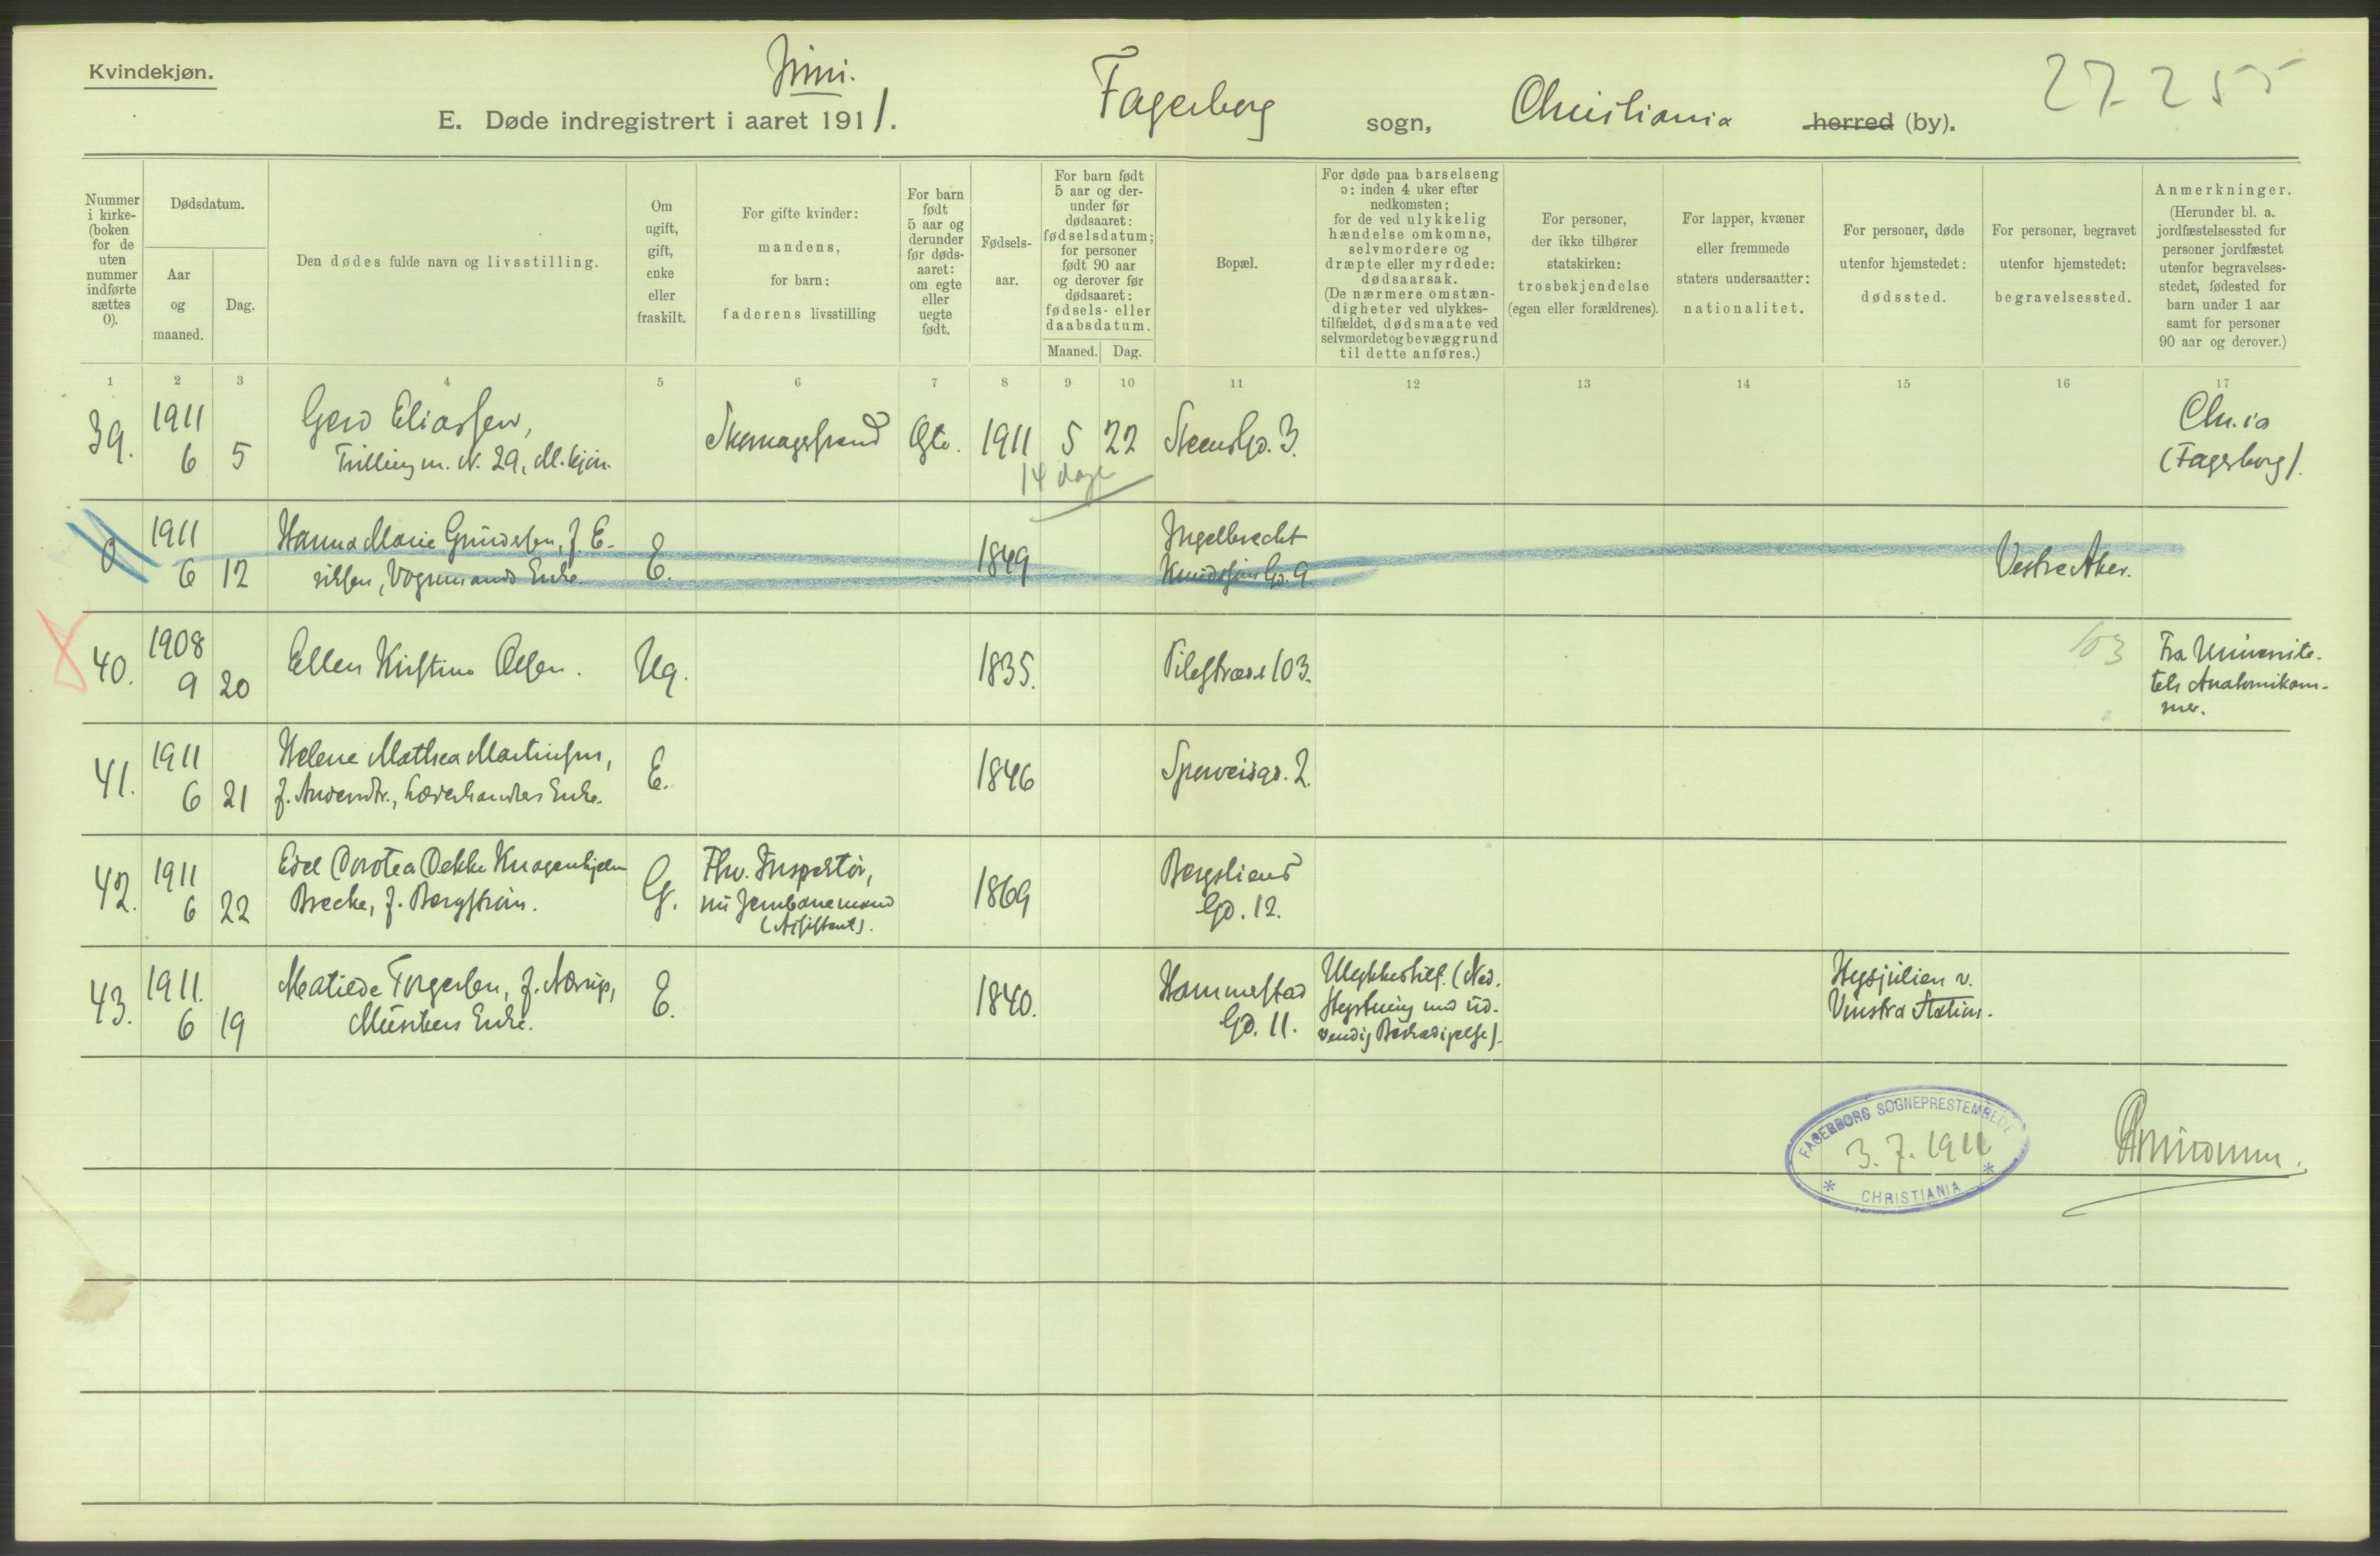 Kvindekjøn.
Juni.
E. Døde indregistrert i aaret 1911.
Fagerborg sogn, Christiania herred (by).
27-255
Nummer i kirke- (boken for de uten nummer indførte sættes 0).
Dødsdatum.
Aar og maaned.
Dag.
Den dødes fulde navn og livsstilling.
Om ugift, gift, enke eller fraskilt.
For gifte kvinder: mandens, for barn: faderens livsstilling
For barn født 5 aar og derunder før døds- aaret: om egte eller uegte født.
Fødsels- aar.
For barn født 5 aar og der- under før dødsaaret: fødselsdatum; for personer født 90 aar og derover før dødsaaret: fødsels- eller daabsdatum.
Maaned. Dag.
Bopæl.
For døde paa barselseng ɔ: inden 4 uker efter nedkomsten; for de ved ulykkelig hændelse omkomne, selvmordere og dræpte eller myrdede: dødsaarsak. (De nærmere omstæn- digheter ved ulykkes- tilfældet, dødsmaate ved selvmordet og bevæggrund til dette anføres.)
For personer, der ikke tilhører statskirken: trosbekjendelse (egen eller forældrenes).
For lapper, kvæner eller fremmede staters undersaatter: nationalitet.
For personer, døde utenfor hjemstedet: dødssted.
For personer, begravet utenfor hjemstedet: begravelsessted.
Anmerkninger. (Herunder bl. a. jordfæstelsessted for personer jordfæstet utenfor begravelses- stedet, fødested for barn under 1 aar samt for personer 90 aar og derover.)
1 2 3 4 5 6 7 8 9 10 11 12 13 14 15 16 17
39. 1911 6 5 Gerd Eliassen, Trilling m. N. 29, M.kjøn. Skomagersvend Gte. 1911 5 22 Steens Gd. 3. Chr.ia (Fagerborg).
14 dage
0 1911 6 12 Hanna Marie Gundersen, f. E- riksen, Vognmands Enke E. 1849 Ingelbrecht Knudssøns Gd. 9 Vestre Aker.
40. 1908 9 20 Ellen Kristine Olsen. Ug. 1835. Pilestræde 103. 103 Fra Universite- tets Anatomikam- mer.
41. 1911 6 21 Helene Mathea Martinsen, f. Andersdtr., Læderhandlers Enke. E. 1846 Sporveisgd. 2.
42. 1911 6 22 Edel Dorotea Dekke Knagenhjelm Brecke, f. Bergstrøm. G. Fhv. Inspektør, nu Jernbanemand (Assistent). 1869 Bergsliens Gd. 12.
43. 1911. 6 19 Matilde Torgersen, f. Aarup, Musikers Enke. E. 1840. Hammerstad Gd. 11. Ulykkestilf. (Ned- styrtning med ud- vendig Beskadigelse). Vinstra Station.
FAGERBORG SOGNEPRESTEMBEDE
3.7.1911
* CHRISTIANIA *